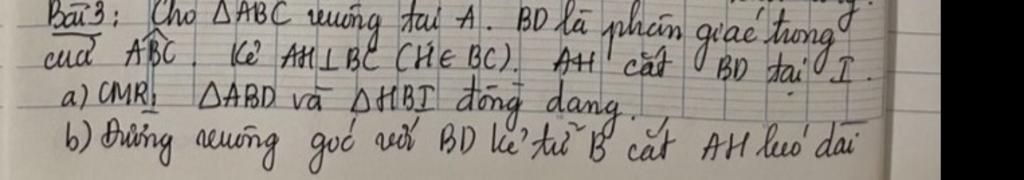 Bài 3: Cho ΔABC vuông tại A. BD là phân giác trong
của ABC. Kẻ AH⊥BC (H∈BC). AH cắt BD tại I.
a) CMR: ΔABD và ΔHBI đồng dạng.
b) Đường vuông góc với BD kẻ từ B cắt AH kéo dài